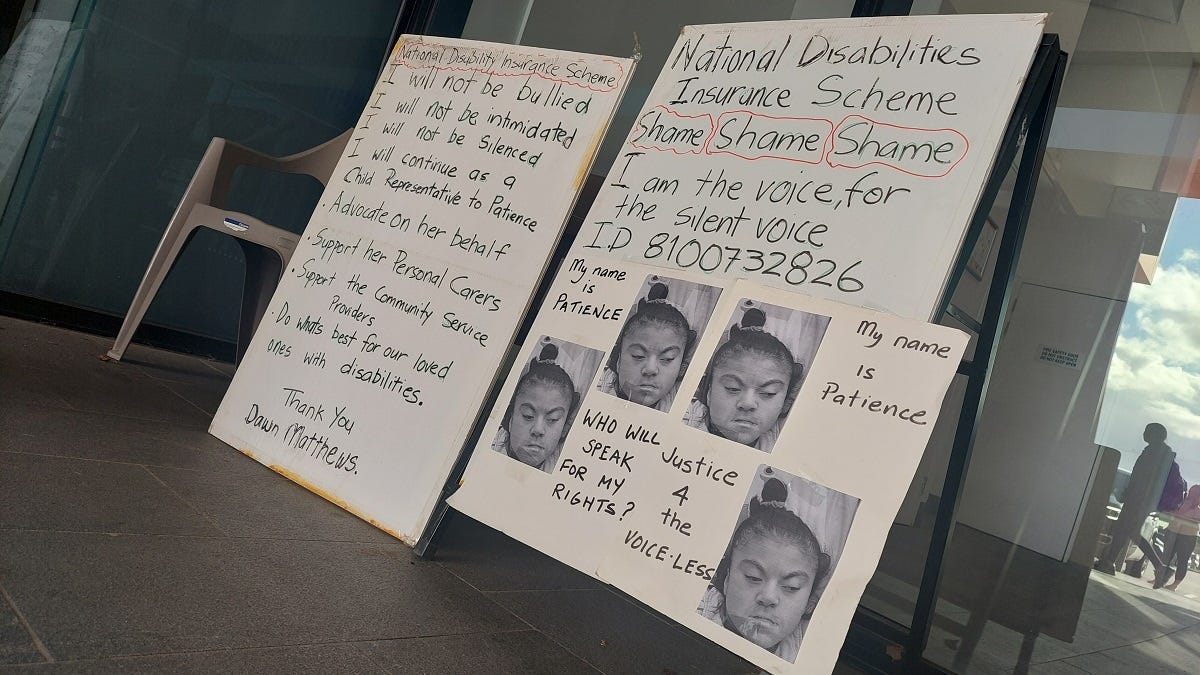 National Disability Insurance Scheme
I will not be bullied
I will not be intmidated
I will not be Silenced
I will continue as a
Child Representative to Patience
· Advocate on her behalf
· Support her Personal Carers
· Support the Community Service
Providers
· Do whats best for our loved
ones with disabilities.
Thank You
Dawn Matthews.
National Disabilities
Insurance Scheme
Shame Shame Shame
I am the voice, for
the silent voice
I.D 8100732826
My name
is
PATIENCE
My name
is
Patience
WHO WILL
SPEAK
FOR MY
RIGHTS?
Justice
4
the
VOICE·LESS